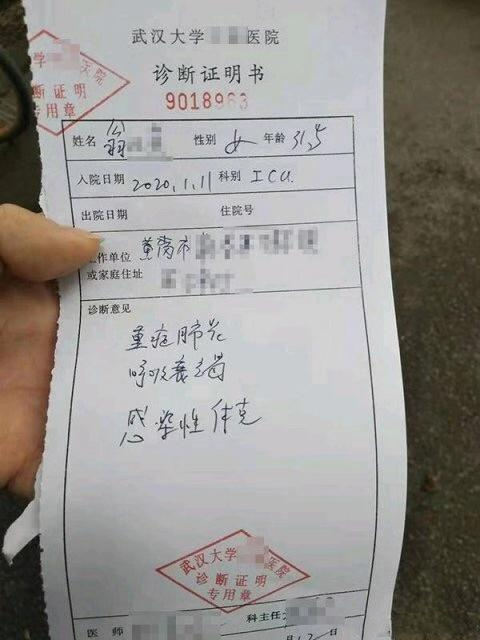 武汉大学 医院
诊断证明书
9018963
医院
诊断证明
专用章
姓名 翁 性别 女 年龄 31岁
入院日期 2020.1.11 科别 ICU
出院日期 住院号
工作单位 黄冈市
或家庭住址
诊断意见
重症肺炎
呼吸衰竭
感染性休克
武汉大学 医院
诊断证明
专用章
医师 科主任
月 日